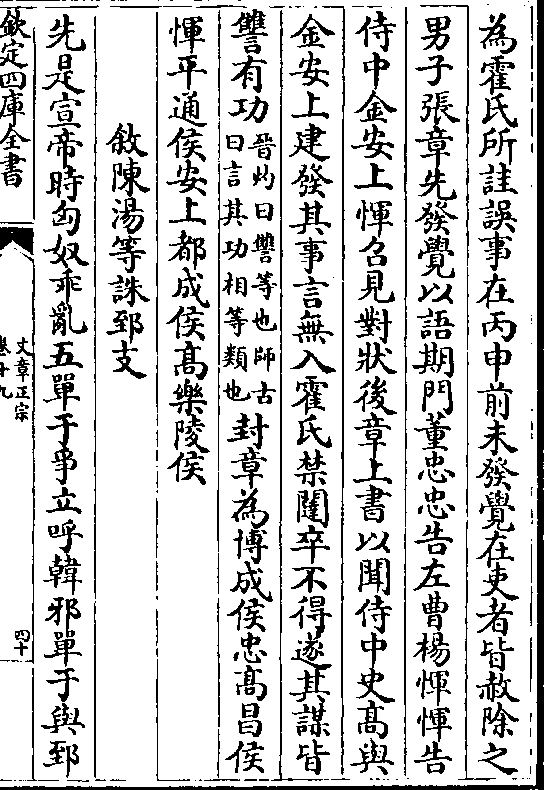 為霍氏所詿誤事在丙申前未發覺在吏者皆赦除之
男子張章先發覺以語期門董忠忠告左曹楊惲惲告
侍中金安上惲召見對狀後章上書以聞侍中史髙與
金安上建發其事言無入霍氏禁闥卒不得遂其謀皆
讐有功晉灼曰讐等也師古曰言其功相等類也封章為博成侯忠髙昌侯
惲平通侯安上都成侯髙樂陵侯
敘陳湯等誅郅支
先是宣帝時匈奴乖亂五單于爭立呼韓邪單于與郅
欽定四庫全書
文章正宗
卷十九
四十